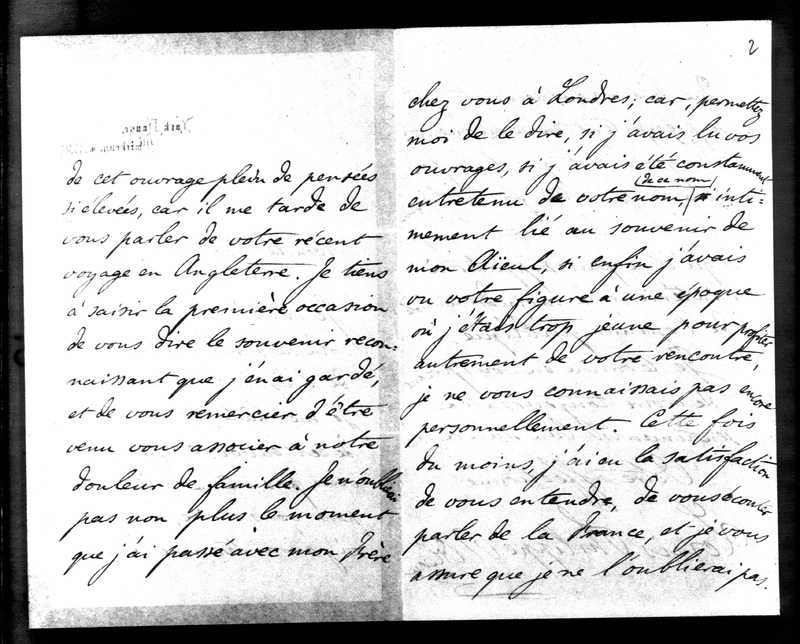 de cet ouvrage plein de pensées
si élevées, car il me tarde de
vous parler de votre récent
voyage en Angleterre. Je tiens
à saisir la première occasion
de vous dire le souvenir recon-
naissant que j'en ai gardé,
et de vous remercier d'être
venu vous associer à notre
douleur de famille. Je n'oublierai
pas non plus le moment
que j'ai passé avec mon Frère
2
chez vous à Londres; car, permettez
moi de le dire, si j'avais lu vos
ouvrages, si j'avais été constamment
entretenu de votre nom, de ce nom si inti-
mement lié au souvenir de
mon Aïeul, si enfin j'avais
vu votre figure à une époque
où j'étais trop jeune pour profiter
autrement de votre rencontre,
je ne vous connaissais pas encore
personnellement. Cette fois
du moins, j'ai eu la satisfaction
de vous entendre, de vous écouter
parler de la France, et je vous
assure que je ne l'oublierai pas.